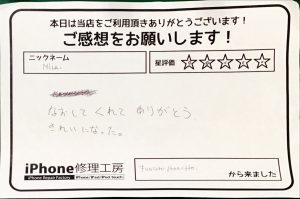 本日は当店をご利用頂きありがとうございます！
ご感想をお願いします！
ニックネーム
星評価 ☆☆☆☆☆
なおして くれて ありがとう
きれいになった。
iPhone修理工房
iPhone Repair Factory iPhone/iPad/iPod touch
から来ました